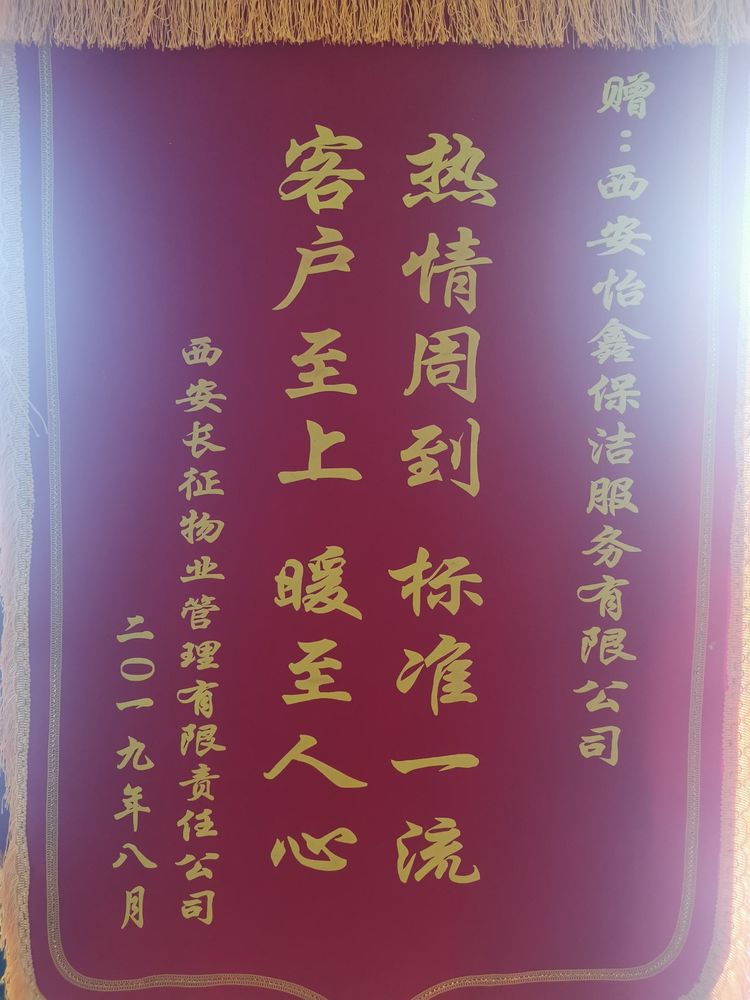 赠：西安怡鑫保洁服务有限公司
热情周到 标准一流
客户至上 暖至人心
西安长征物业管理有限责任公司
二〇一九年八月